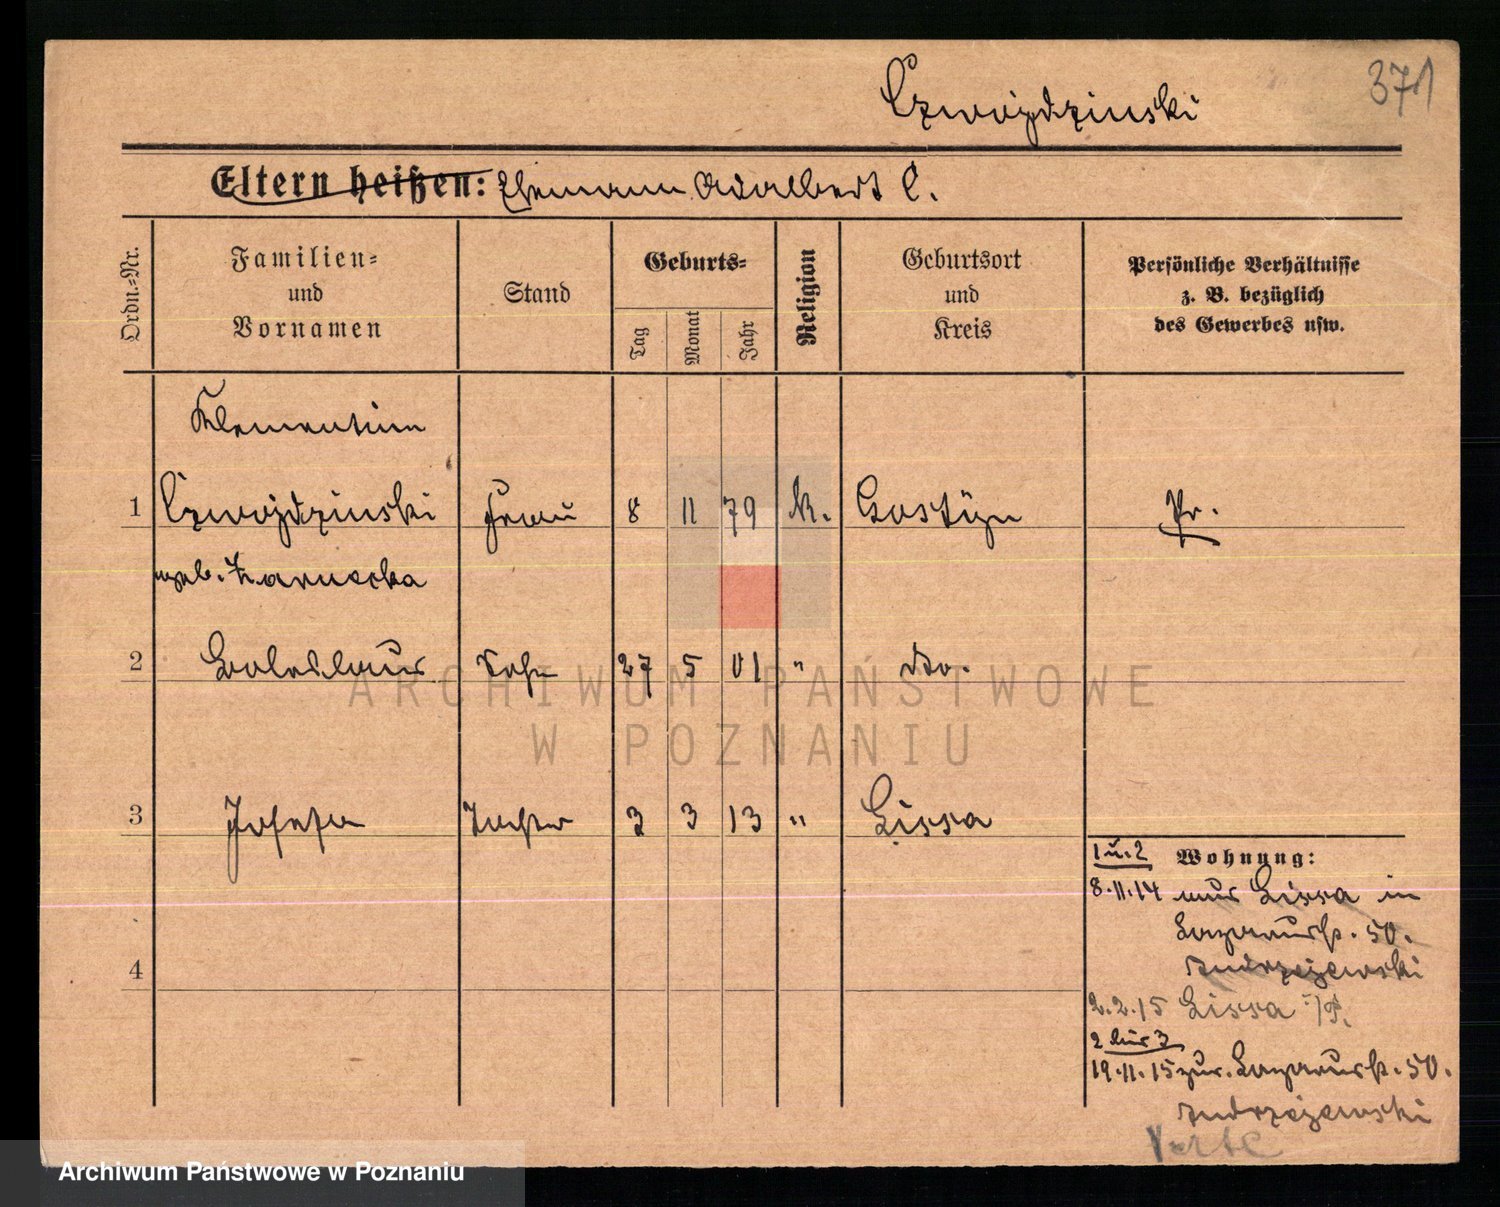 Czwojdzinski
371
Eltern heißen: Ehemann Adalbert C.
Ordn.-Nr.
Familien-
und
Vornamen
Stand
Geburts-
Tag
Monat
Jahr
Religion
Geburtsort
und
Kreis
Persönliche Verhältnisse
z. B. bezüglich
des Gewerbes usw.
Klementine
1 Czwojdzinski Frau 8 11 79 K. Gostÿn Pr.
geb. Zarnecka
2 Boleslaus Sohn 27 5 01 " do.
3 Josefa Tochter 3 3 13 " Lissa
4
1 u. 2 Wohnung:
8.11.14 aus Lissa in
Lazarusstr. 50.
Andrzejewski
2.2.15 Lissa i/P.
2 bis 3
19.11.15 zur. Lazarusstr. 50.
Andrzejewski
Verte
ARCHIWUM PAŃSTWOWE
W POZNANIU
Archiwum Państwowe w Poznaniu